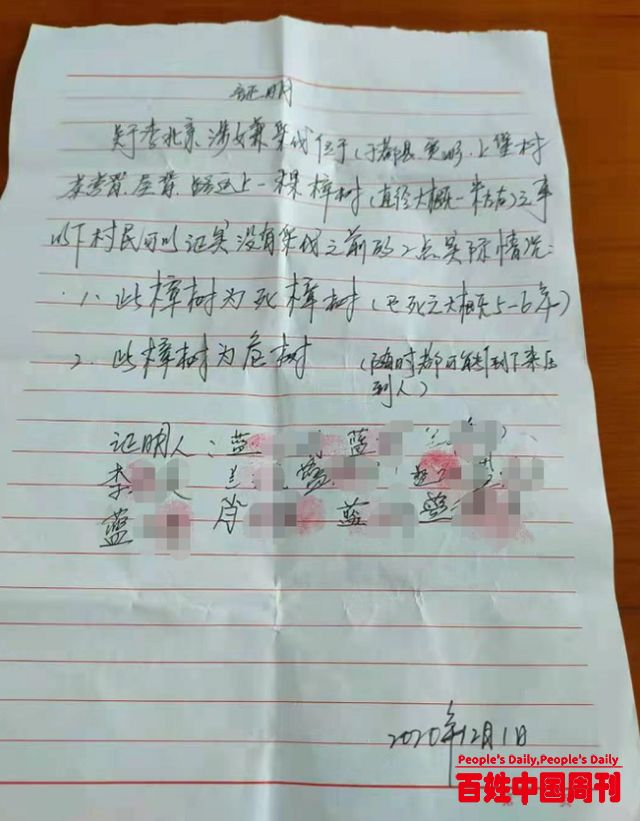 证明
关于李北京涉嫌砍伐位于(于都县 上堡村
屋背 上一棵樟树(直径大概一米左右)之事
以下村民可以证实没有砍伐之前的2点实际情况:
1、此樟树为死樟树(已死亡大概5-6年)
2、此樟树为危树(随时都可能倒下来压
到人)
证明人:蓝 蓝 兰
李 兰 蓝
蓝 肖 蓝 蓝
2020年12月1日
People's Daily,People's Daily
百姓中国周刊